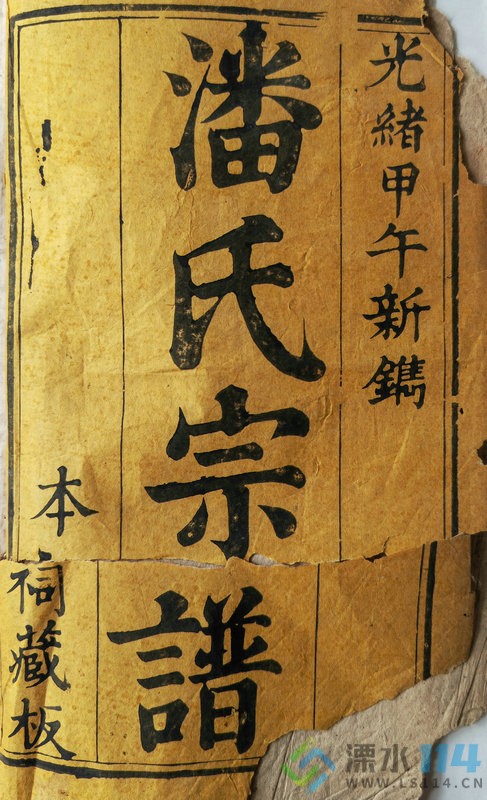 光緒甲午新鐫
潘氏宗譜
本祠藏板
溧水114
WWW.LS114.CN